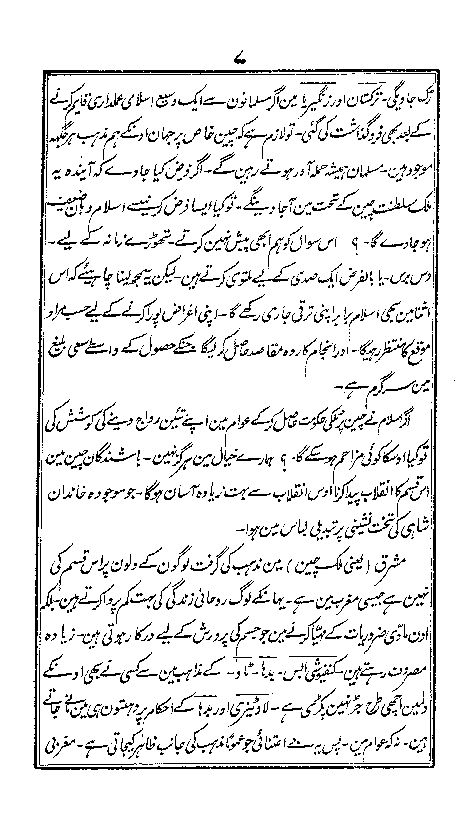 ۷
ترک جاوینگی۔ ترکستان اور زنگیریا مین اگر مسلمانون سے ایک وسیع اسلامی عملداری قایم کرنے
کے بعد بھی فروگذاشت کی گئی۔ تو لازم ہے کہ چین خاص پر جہان اونکے ہم مذہب ہر جگہہ
موجود ہین۔ مسلمان ہمیشہ حملہ آور ہوتے رہین گے۔ اگر فرض کیا جاوے کہ آیندہ یہ
ملک سلطنت چین کے تحت مین آجاوینگے۔ تو کیا ایسا فرض کرنیسے اسلام وہان ضعیف
ہو جاوے گا۔ ؟ اس سوال کو ہم ابھی پیش نہین کرتے۔ تھوڑے زمانہ کے لیے۔
دس برس۔ یا بالفرض ایک صدی کے لیے ملتوی کرتے ہین۔ لیکن یہ سمجھ لینا چاہیئے کہ اس
اثنا مین بھی اسلام برابر اپنی ترقی جاری رکھے گا۔ اپنی اغراض پورا کرنے کے لیے حسب مراد
موقع کا منتظر رہیگا۔ اور انجام کار وہ مقاصد حاصل کرلیگا جنکے حصول کے واسطے سعی بلیغ
مین سرگرم ہے۔
اگر اسلام نے چین پر ملکی حکومت حاصل کرکے عوام مین اپنے تئین رواج دینے کی کوشش کی
تو کیا اوسکا کوئی مزاحم ہو سکے گا۔ ؟ ہمارے خیال مین ہرگز نہین۔ باشندگان چین مین
اس قسم کا انقلاب پیدا کرنا اوس انقلاب سے بہت زیادہ آسان ہوگا۔ جو موجودہ خاندان
شاہی کی تخت نشینی پر تبدیلی لباس مین ہوا۔
مشرق (یعنی ملک چین) مین مذہب کی گرفت لوگون کے دلون پر اس قسم کی
نہین ہے جیسی مغرب مین ہے۔ یہانکے لوگ روحانی زندگی کی بہت کم پروا کرتے ہین بلکہ
اون مادی ضروریات کے مہیا کرنے مین جو جسم کی پرورش کے لیے درکار ہوتی ہین۔ زیادہ
مصروف رہتے ہین کنفیوشی ایس۔ بدہا۔ تاو۔ کے مذاہب مین سے کسی نے بھی اونکے
دلمین اچھی طرح جڑ نہین پکڑی ہے۔ لاوٹیزی اور بدہا کے احکام پروہتون ہی مین مانے جاتے
ہین۔ نہ کہ عوام مین۔ پس یہ بے اعتنائی جو عموماً مذہب کی جانب ظاہر کیجاتی ہے۔ مغربی